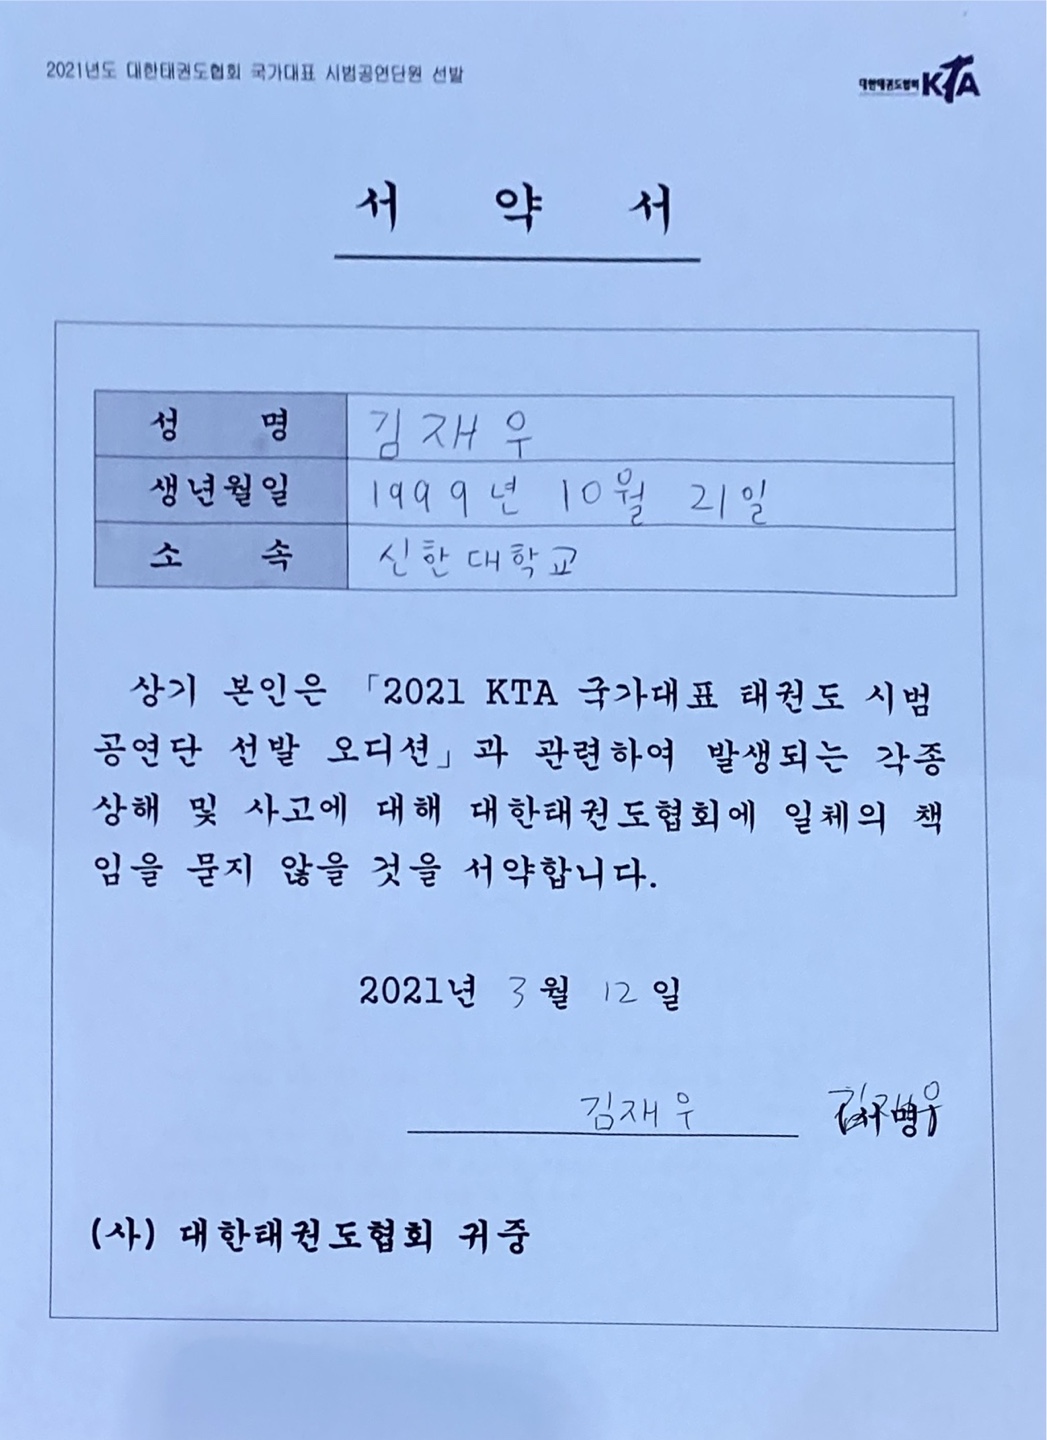 2021년도 대한태권도협회 국가대표 시범공연단원 선발
대한태권도협회 KTA
서 약 서
성 명 김재우
생년월일 1999년 10월 21일
소 속 신한대학교
상기 본인은 「2021 KTA 국가대표 태권도 시범
공연단 선발 오디션」과 관련하여 발생되는 각종
상해 및 사고에 대해 대한태권도협회에 일체의 책
임을 묻지 않을 것을 서약합니다.
2021년 3월 12일
김재우 (서명) 김재우
(사) 대한태권도협회 귀중